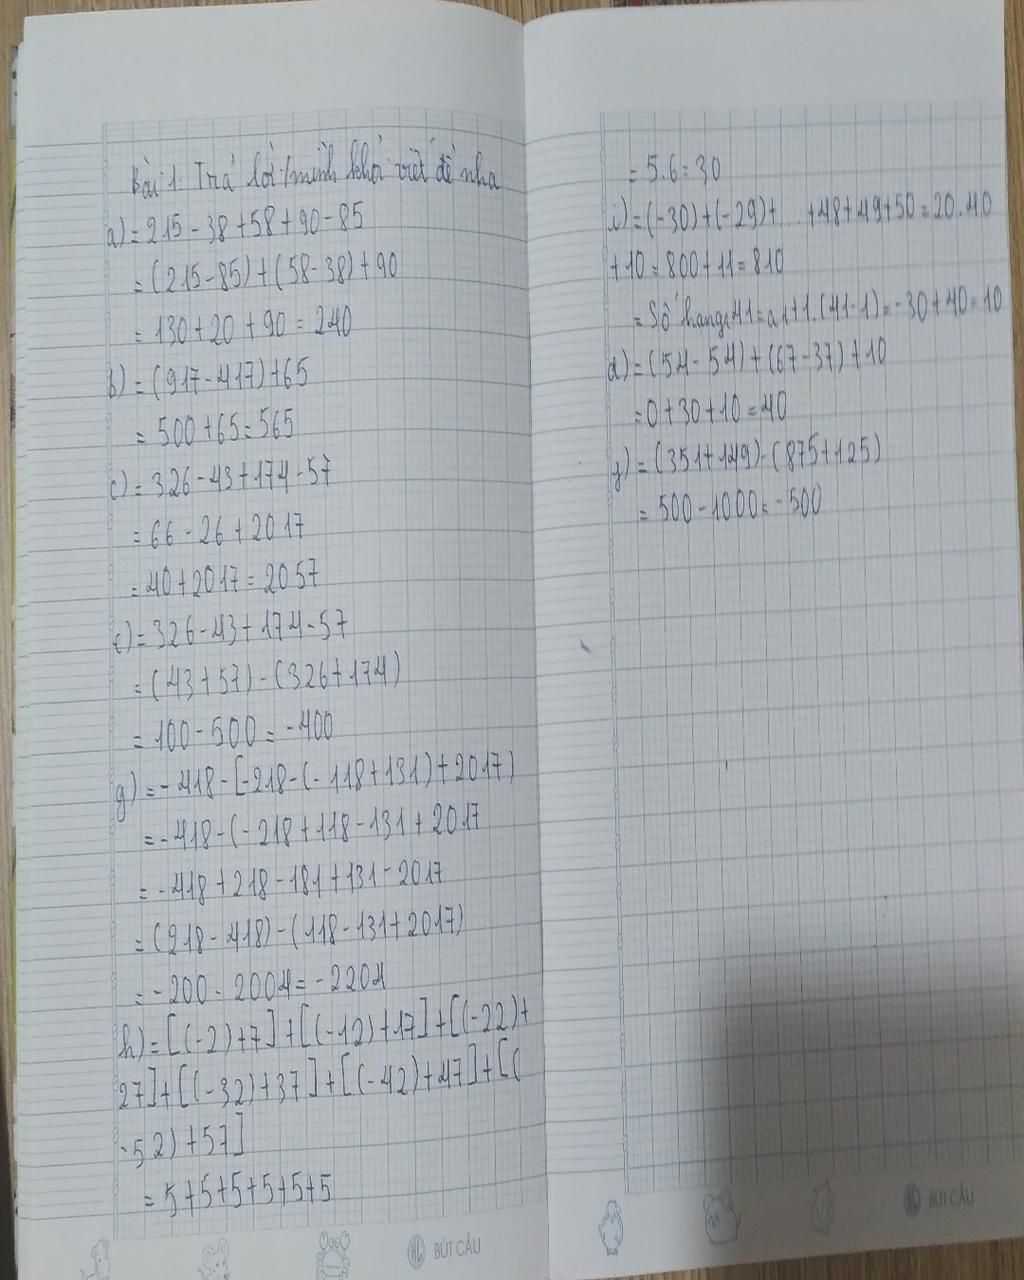 Bài 1. Trả lời/mình khỏi viết đề nha
a) = 215 - 38 + 58 + 90 - 85
= (215 - 85) + (58 - 38) + 90
= 130 + 20 + 90 = 240
b) = (917 - 417) + 65
= 500 + 65 = 565
c) = 326 - 43 + 174 - 57
= 66 - 26 + 2017
= 40 + 2017 = 2057
e) = 326 - 43 + 174 - 57
= (43 + 57) - (326 + 174)
= 100 - 500 = -400
g) = - 418 - [-218 - (-118 + 131) + 2017)
= - 418 - (-218 + 118 - 131 + 2017
= - 418 + 218 - 181 + 131 - 2017
= (218 - 418) - (118 - 131 + 2017)
= -200 - 2004 = -2204
h) = [(-2)+7] + [(-12)+17] + [(-22)+
27] + [(-32)+37] + [(-42)+47] + [(
-52)+57]
= 5+5+5+5+5+5
BÚT CẦU
= 5.6 = 30
i) = (-30) + (-29) + ... + 48 + 49 + 50 = 20.40
+ 10 = 800 + 11 = 810
= Số hạng 41 = a1 + 1.(41-1) = -30 + 40 = 10
d) = (54 - 54) + (67 - 37) + 10
= 0 + 30 + 10 = 40
f) = (351 + 149) - (875 + 125)
= 500 - 1000 = -500
BÚT CẦU